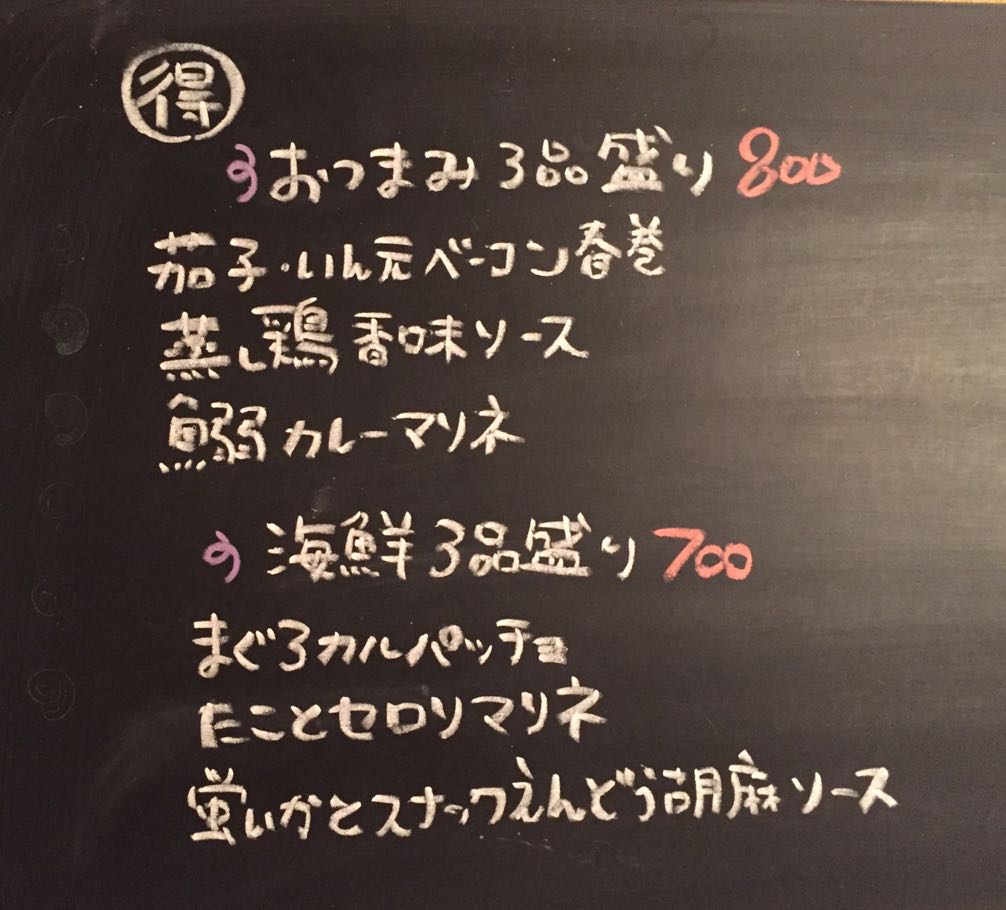 得
おつまみ3品盛り 800
茄子・いん元ベーコン春巻
蒸し鶏 香味ソース
鰯 カレーマリネ
海鮮3品盛り 700
まぐろカルパッチョ
たことセロリマリネ
蛍いかとスナックえんどう胡麻ソース